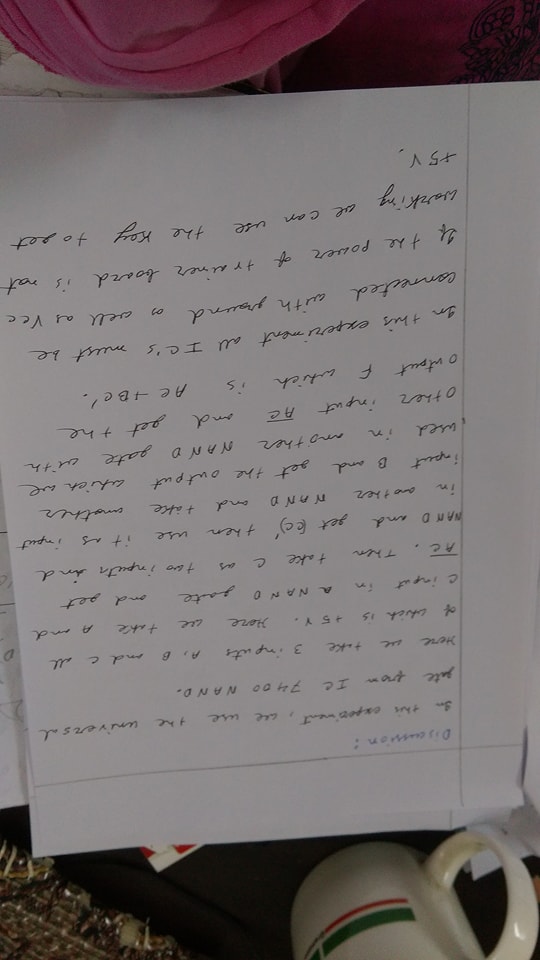 Discussion:
In this experiment, we use the universal
gate from IC 7400 NAND.
Here we take 3 inputs A, B and C all
of which is +5 V. Here we take A and
C input in a NAND gate and get
A̅C̅. Then take C as two inputs and
NAND and get (CC)', then use it as input
in another NAND and take another
input B and get the output which we
used in another NAND gate with
other input A̅C̅ and get the
output F which is AC + BC'.
In this experiment all IC's must be
connected with ground as well as Vcc
If the power of trainer board is not
working we can use the key to get
+5 V.